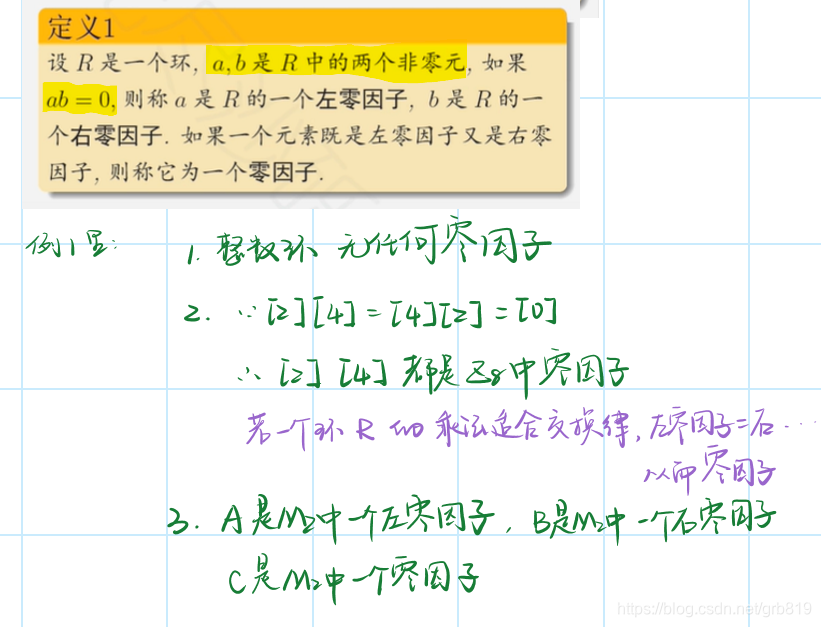 定义1
设 R 是一个环, a,b 是 R 中的两个非零元, 如果
ab = 0, 则称 a 是 R 的一个左零因子, b 是 R 的一
个右零因子. 如果一个元素既是左零因子又是右零
因子, 则称它为一个零因子.
例1里: 1. 整数环 无任何零因子
2. ∵ [2][4] = [4][2] = [0]
∴ [2] [4] 都是 Z8 中零因子
若一个环 R 的 乘法适合交换律, 左零因子=右...
从而零因子
3. A是M2中一个左零因子, B是M2中一个右零因子
C是M2中一个零因子
https://blog.csdn.net/grb819